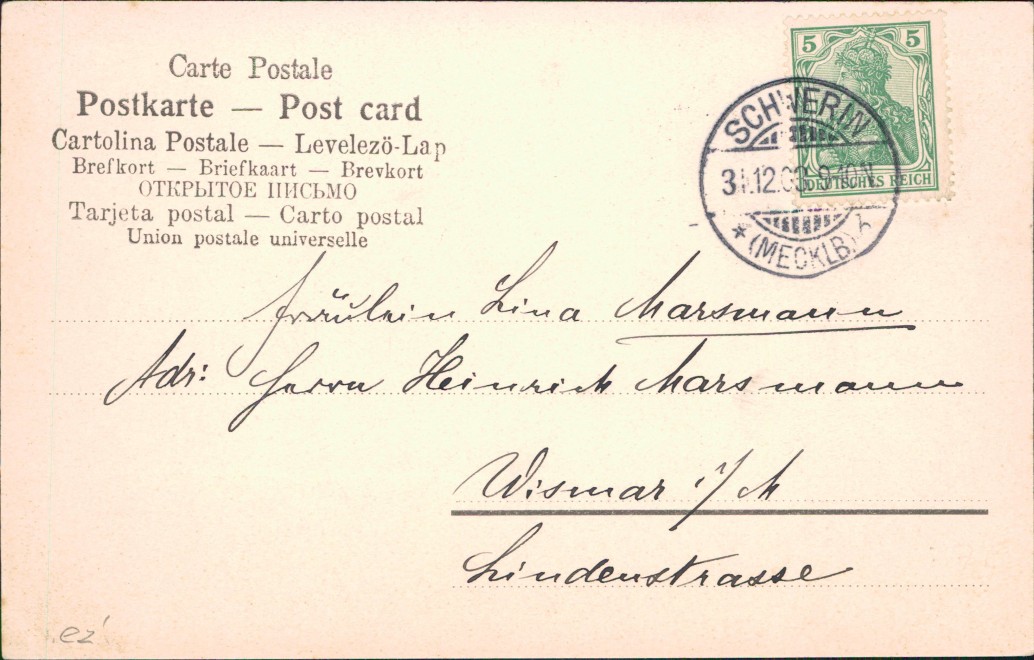 Carte Postale
Postkarte — Post card
Cartolina Postale — Levelezö-Lap
Brefkort — Briefkaart — Brevkort
ОТКРЫТОЕ ПИСЬМО
Tarjeta postal — Carto postal
Union postale universelle
5 5
DEUTSCHES REICH
SCHWERIN
31.12.03. 9-10N.
* (MECKLB.) h
Fräulein Lina Marsmann
Adr: Herrn Heinrich Marsmann
Wismar i/M
Lindenstrasse
ez'